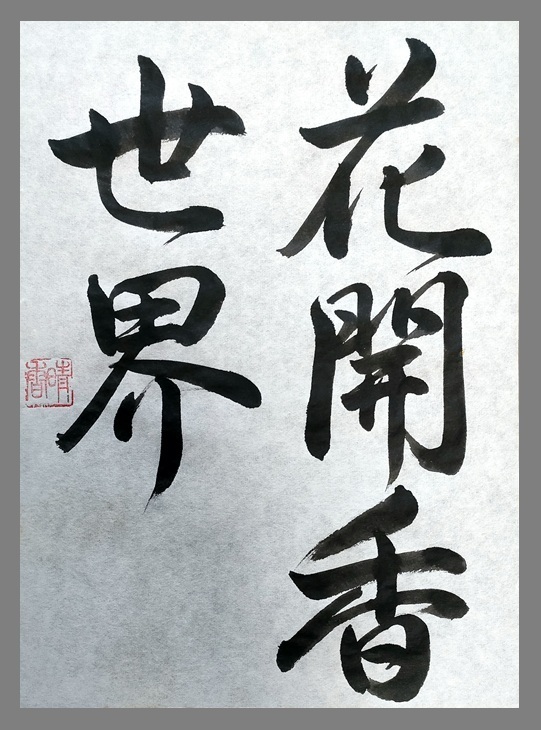 花開香
世界
晴香